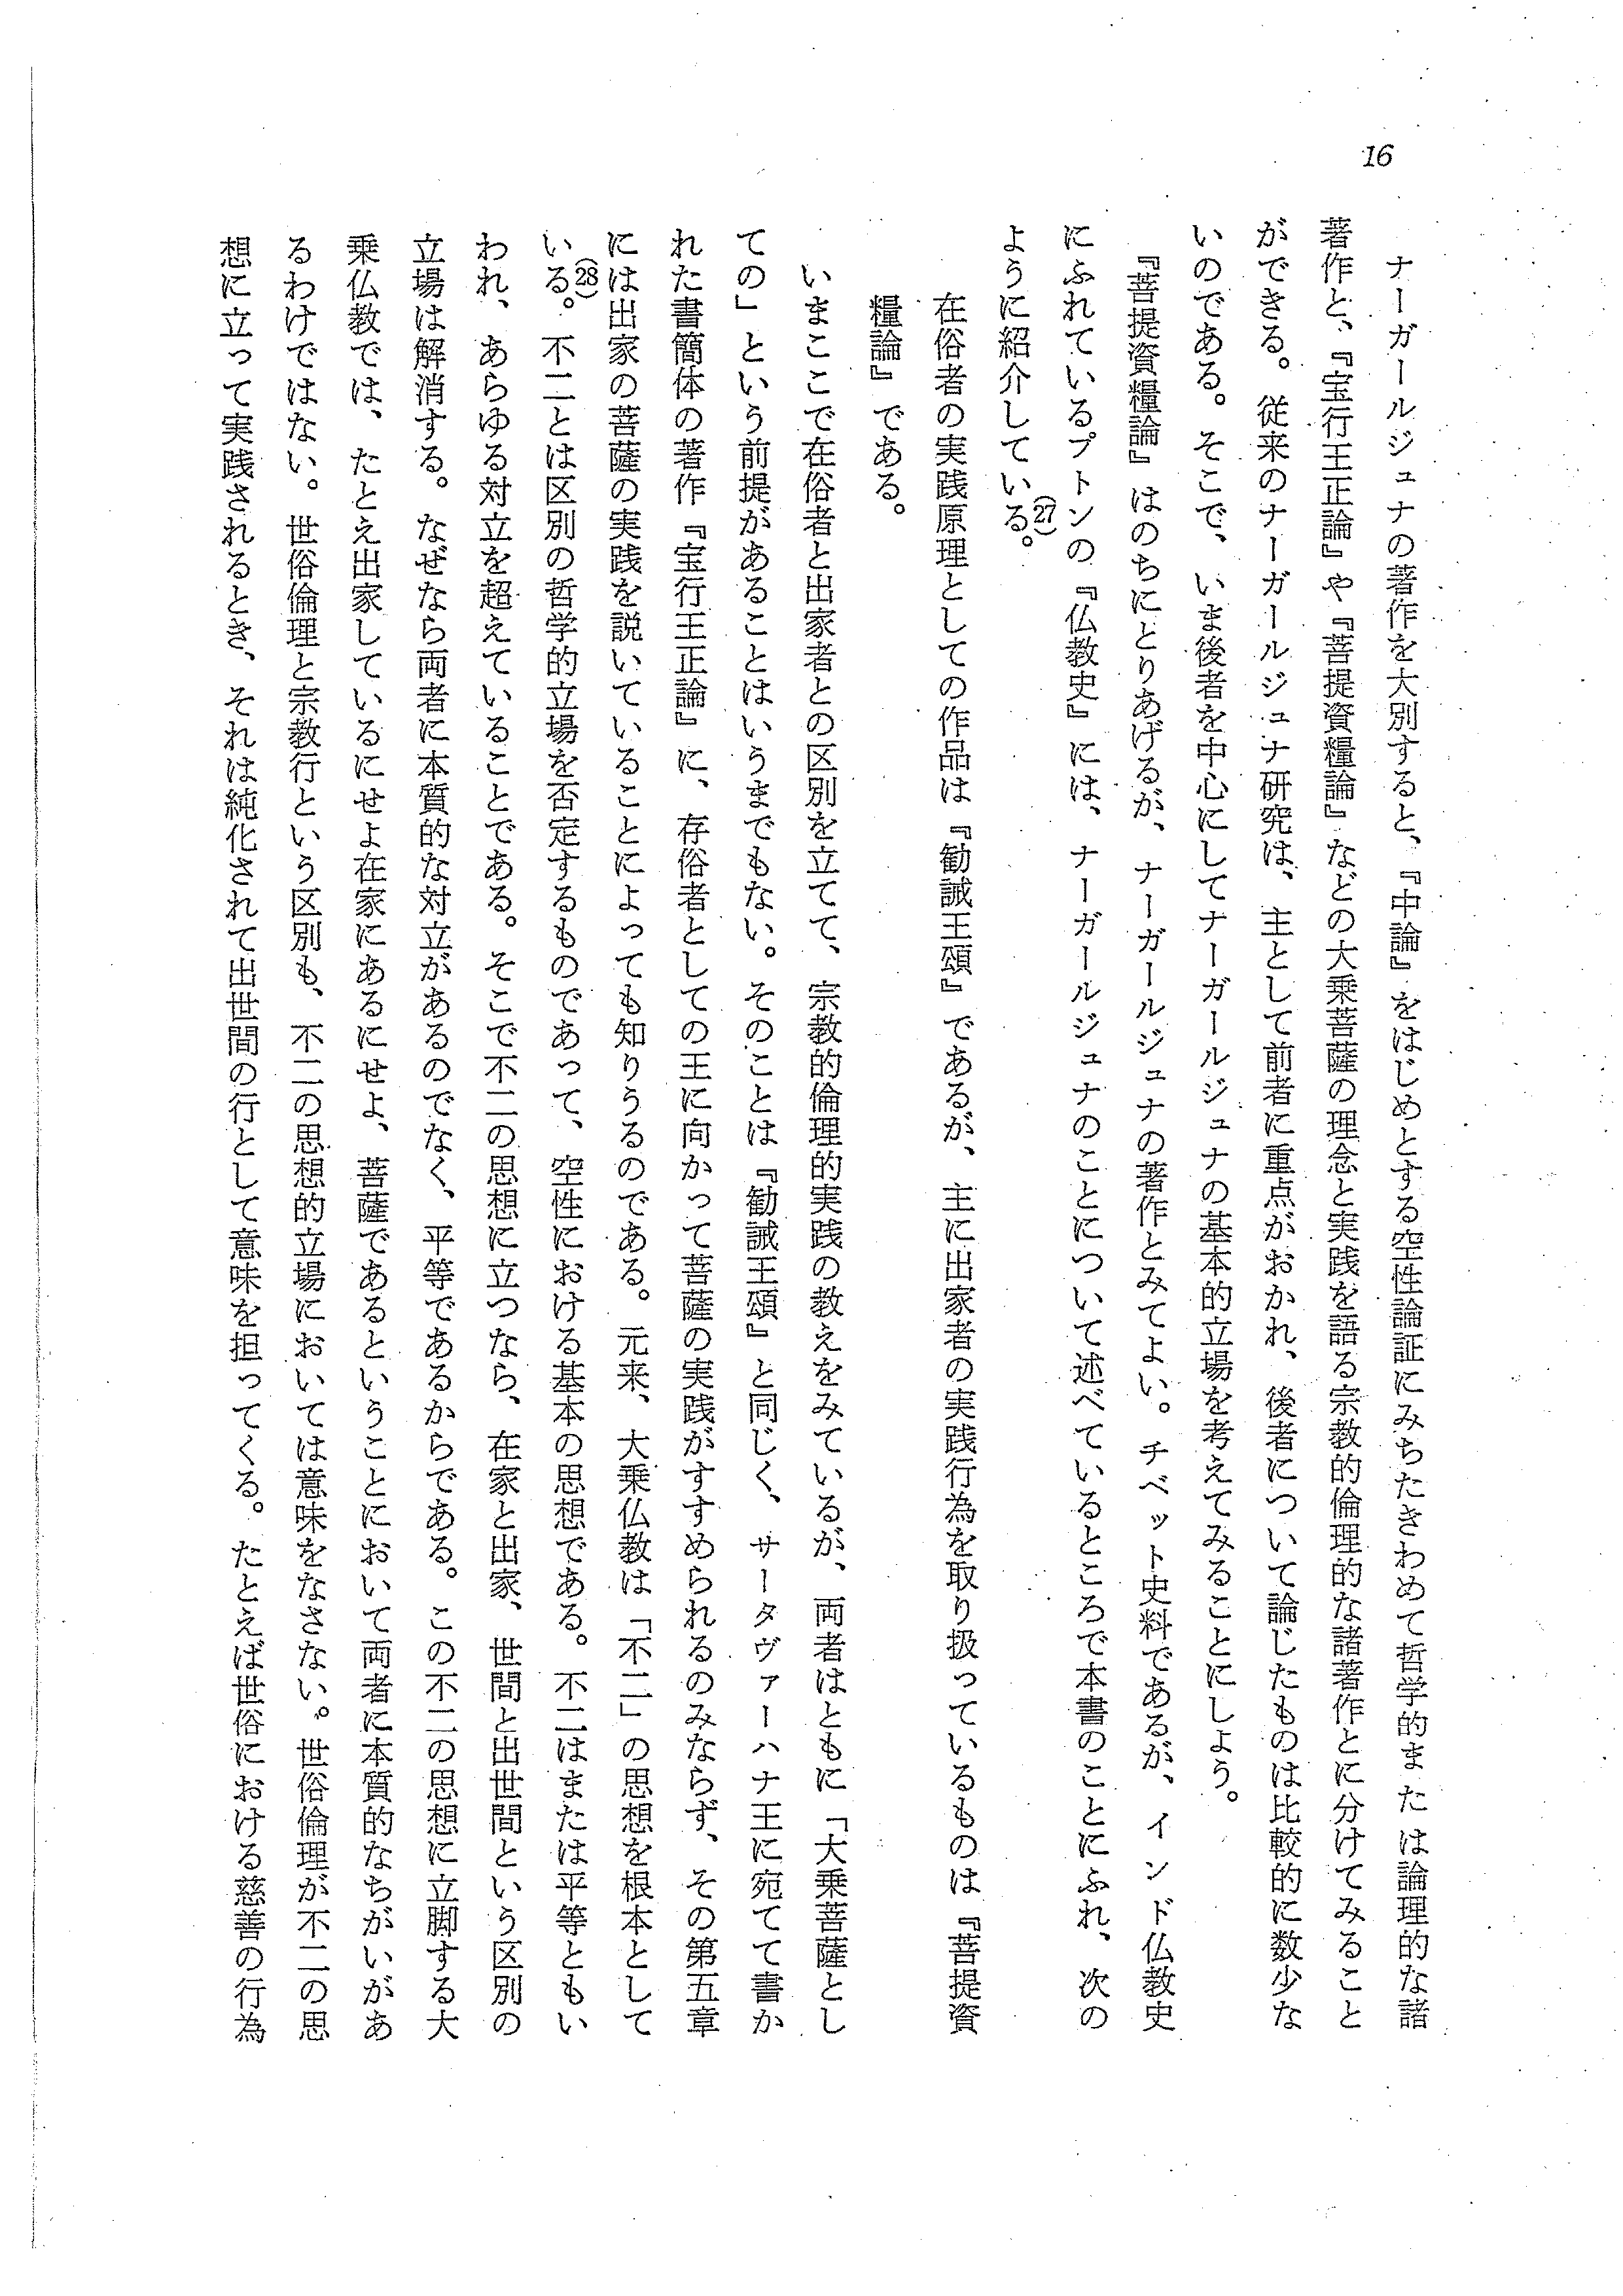 16
ナーガールジュナの著作を大別すると、『中論』をはじめとする空性論証にみちたきわめて哲学的または論理的な諸
著作と、『宝行王正論』や『菩提資糧論』などの大乗菩薩の理念と実践を語る宗教的倫理的な諸著作とに分けてみること
ができる。従来のナーガールジュナ研究は、主として前者に重点がおかれ、後者について論じたものは比較的に数少な
いのである。そこで、いま後者を中心にしてナーガールジュナの基本的立場を考えてみることにしよう。
『菩提資糧論』はのちにとりあげるが、ナーガールジュナの著作とみてよい。チベット史料であるが、インド仏教史
にふれているプトンの『仏教史』には、ナーガールジュナのことについて述べているところで本書のことにふれ、次の
ように紹介している。(27)
在俗者の実践原理としての作品は『勧誡王頌』であるが、主に出家者の実践行為を取り扱っているものは『菩提資
糧論』である。
いまここで在俗者と出家者との区別を立てて、宗教的倫理的実践の教えをみているが、両者はともに「大乗菩薩とし
ての」という前提があることはいうまでもない。そのことは『勧誡王頌』と同じく、サータヴァーハナ王に宛てて書か
れた書簡体の著作『宝行王正論』に、存俗者としての王に向かって菩薩の実践がすすめられるのみならず、その第五章
には出家の菩薩の実践を説いていることによっても知りうるのである。元来、大乗仏教は「不二」の思想を根本として
いる。(28)不二とは区別の哲学的立場を否定するものであって、空性における基本の思想である。不二はまたは平等ともい
われ、あらゆる対立を超えていることである。そこで不二の思想に立つなら、在家と出家、世間と出世間という区別の
立場は解消する。なぜなら両者に本質的な対立があるのでなく、平等であるからである。この不二の思想に立脚する大
乗仏教では、たとえ出家しているにせよ在家にあるにせよ、菩薩であるということにおいて両者に本質的なちがいがあ
るわけではない。世俗倫理と宗教行という区別も、不二の思想的立場においては意味をなさない。世俗倫理が不二の思
想に立って実践されるとき、それは純化されて出世間の行として意味を担ってくる。たとえば世俗における慈善の行為